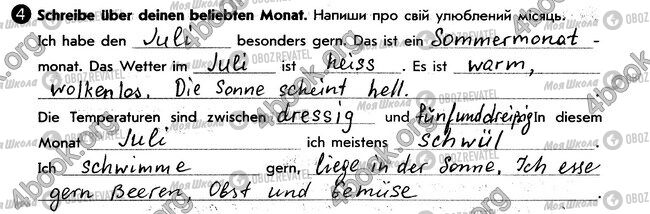 4 Schreibe über deinen beliebten Monat. Напиши про свій улюблений місяць.
Ich habe den Juli besonders gern. Das ist ein Sommermonat -
monat. Das Wetter im Juli ist heiss. Es ist warm,
wolkenlos. Die Sonne scheint hell.
Die Temperaturen sind zwischen dressig und fünfunddreißig In diesem
Monat Juli ich meistens schwül.
Ich schwimme gern, liege in der Sonne. Ich esse
gern Beeren, Obst und Gemüse